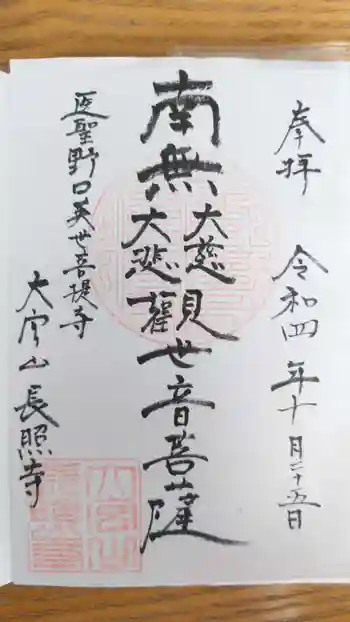 奉拝 令和四年十月二十五日
南無大慈大悲觀世音菩薩
医聖野口英世菩提寺
大宮山長照寺